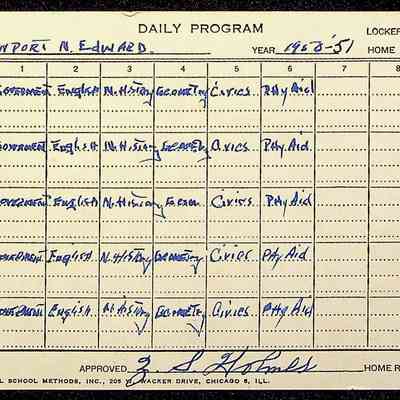 DAILY PROGRAM
LOCKER
NPORT N. EDWARD.
YEAR 1950-'51 HOME
1 2 3 4 5 6 7 8
English N. History Geometry Civics Phy Aid
English N. History Geometry Civics Phy Aid.
English N. History Geom Civics Phy Aid
English N. History Geometry Civics Phy Aid
English N. History Geometry Civics Phy Aid
APPROVED Z. S. Holmes HOME R
L SCHOOL METHODS, INC., W. WACKER DRIVE, CHICAGO 6, ILL.